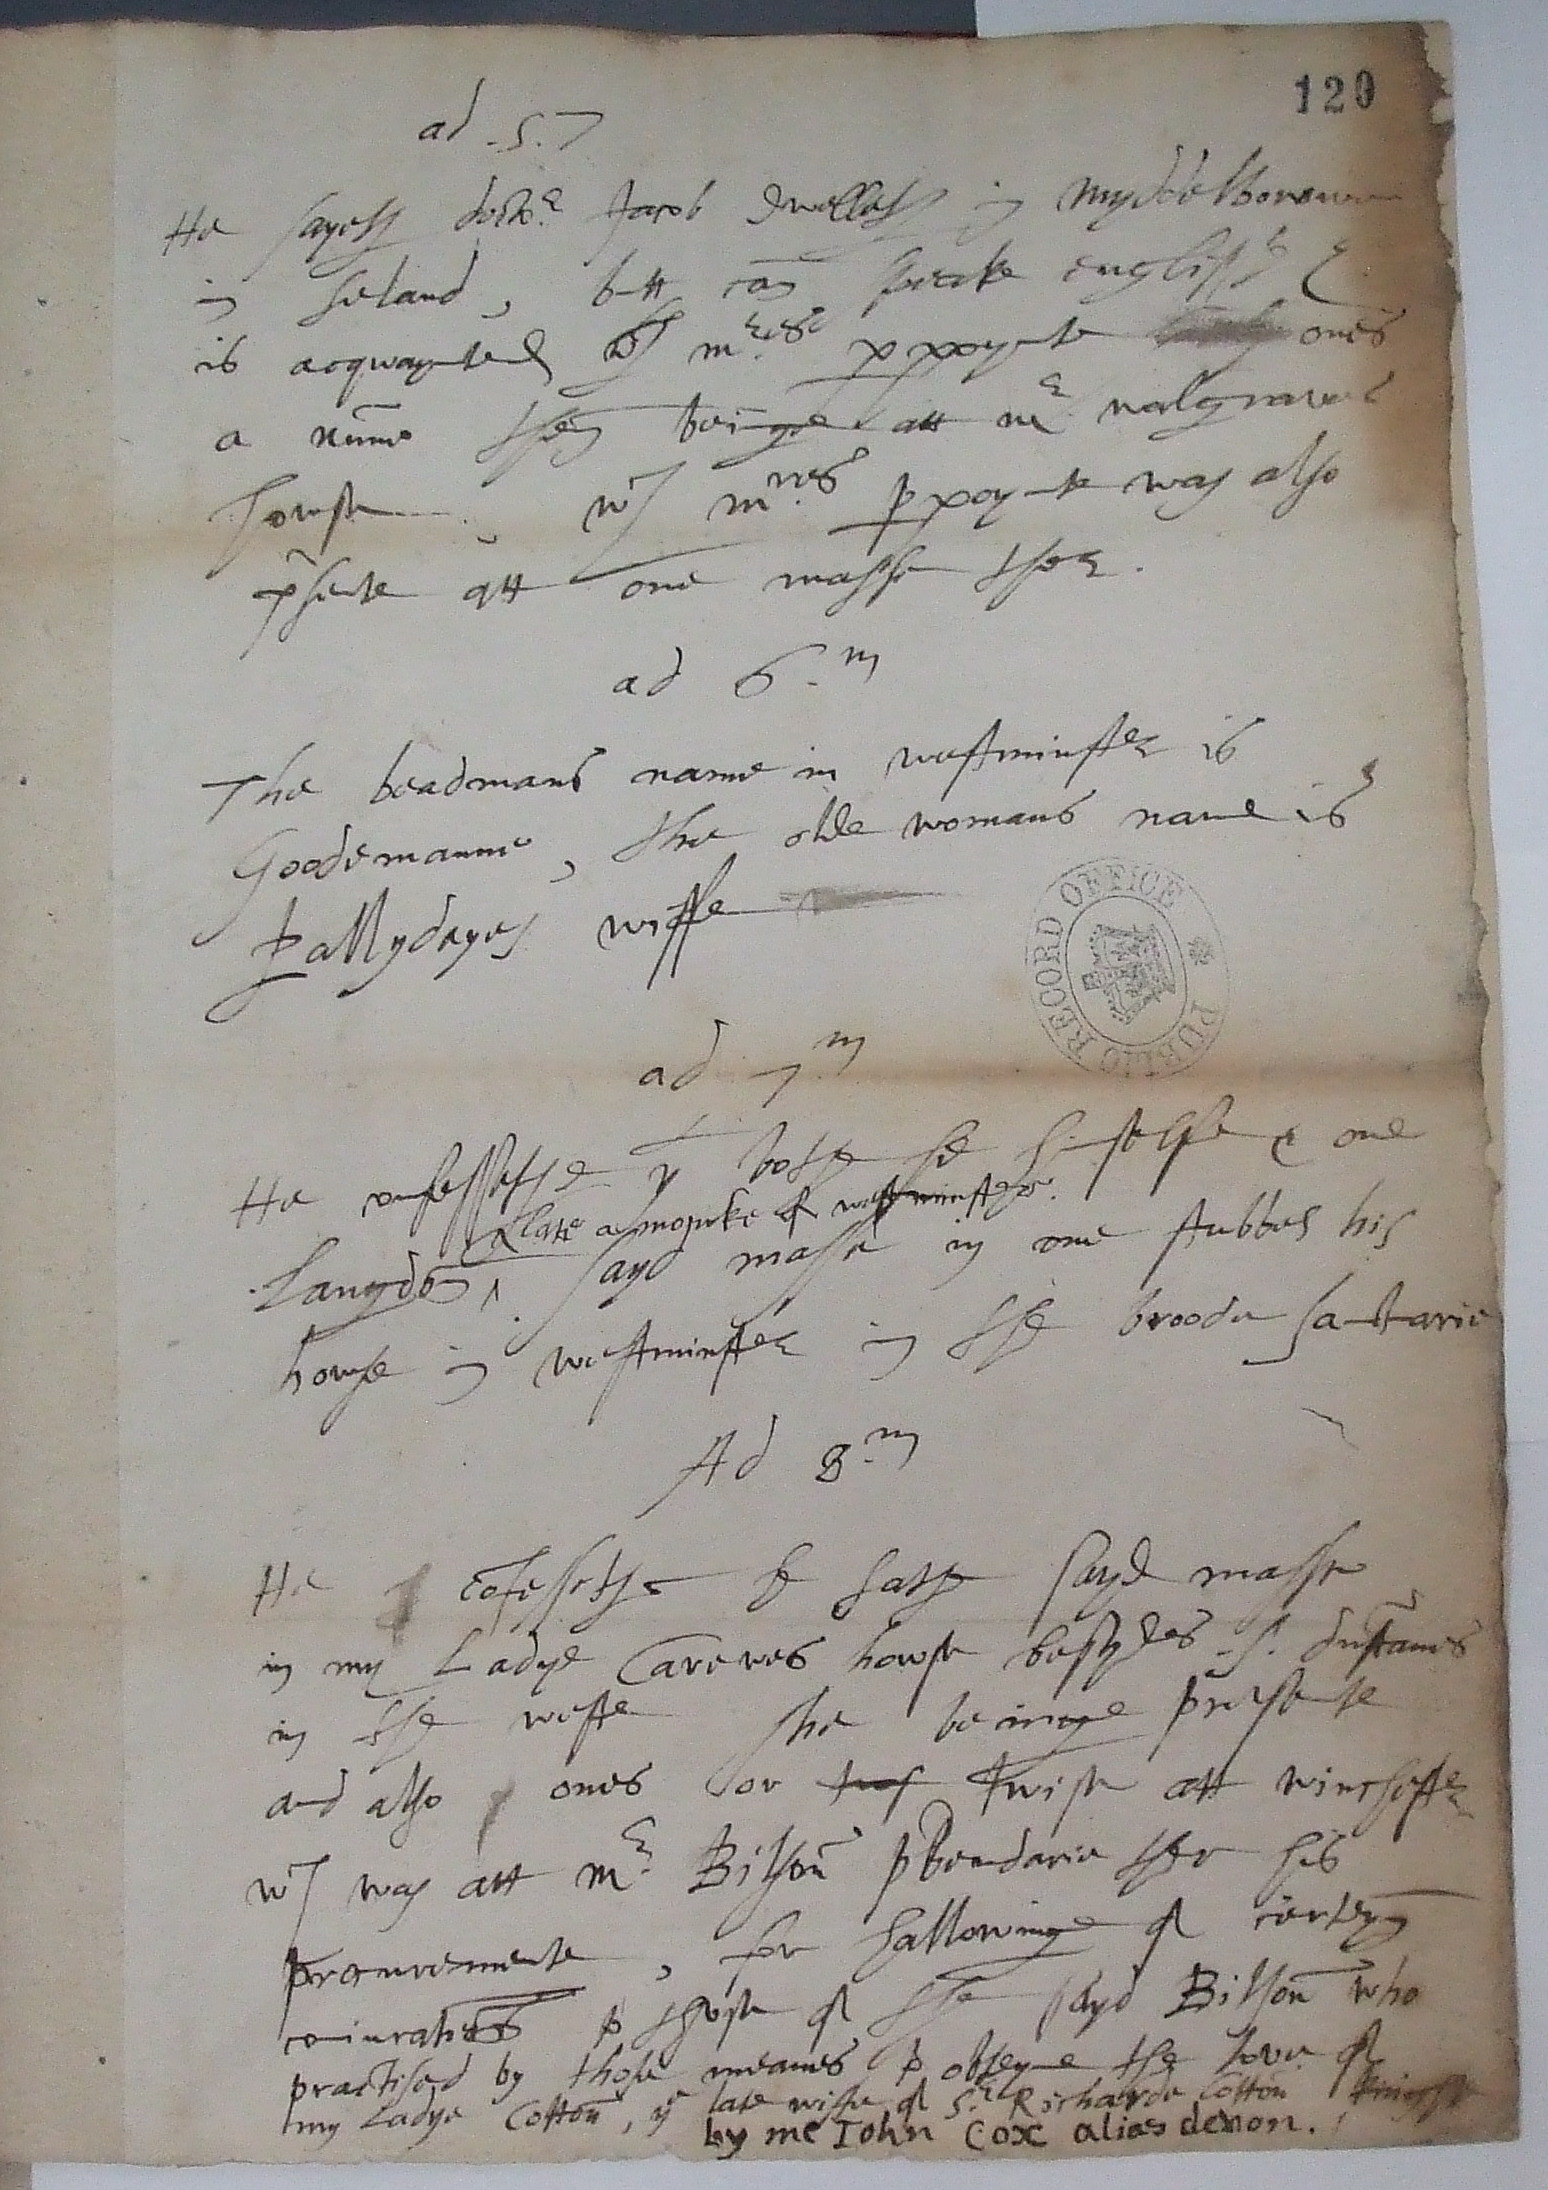 120
ad .5.
He sayeth doctor Jacob dwelleth in Myddelborowe
in Seland, butt can speake englishe &
is acqwaynted wth mres pxpoynte ones
a nunne then beinge att mr walgraves
howse, wch mres pxpoynte was also
psente att one masse ther.
ad 6.m
The beadmans name in westminster is
Goodemanne, the olde womans name is
hallydayes wiffe
ad 7m
He confessethe yt bothe he himselfe & one
late a moncke of westminster.
Langdon ^ sayd masse in one stubbes his
howse in westminster in the broode santuarie
Ad 8.m
He cōfessethe he hathe sayd masse
in my Ladye Carewes howse besydes .S. dunstanes
in the weste she beinge presente
and also ones or twise att winchester
wch was att mr. Bilson pbendarie ther his
procuremente, for hallowinge of certeyn
coniurations to the use of the sayd Bilson who
practised by those meanes to obteyne the love of
my Ladye Cotton, ye late wiffe of Sr. Richarde Cotton knight
by me Iohn Cox alias devon.
PUBLIC RECORD OFFICE